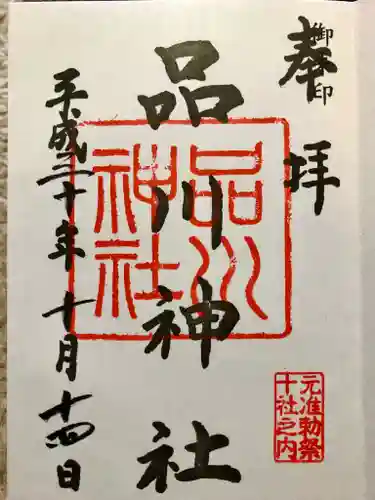 奉拝
御印
品川神社
品川神社
元准勅祭
十社之内
平成三十年十月十四日